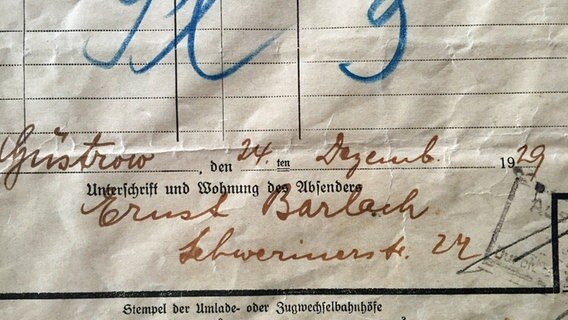 9
Güstrow, den 24.ten Dezemb. 1929
Unterschrift und Wohnung des Absenders
Ernst Barlach
Schwerinerstr. 22
Stempel der Umlade- oder Zugwechselbahnhöfe